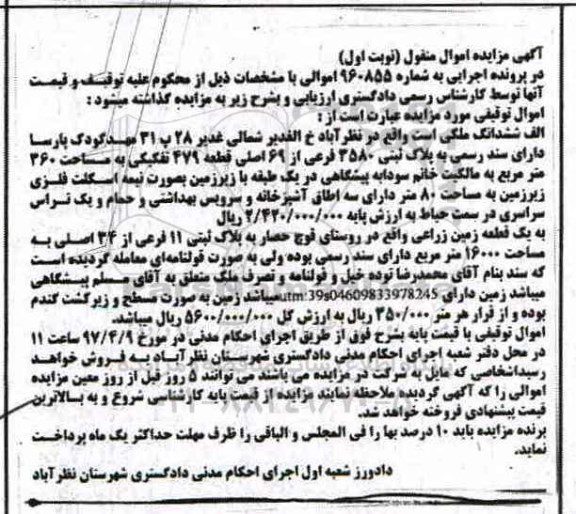 آگهی مزایده اموال منقول (نوبت اول)
در پرونده اجرایی به شماره ۹۶۰۸۵۵ اموالی با مشخصات ذیل از محکوم علیه توقیف و قیمت
آنها توسط کارشناس رسمی دادگستری ارزیابی و بشرح زیر به مزایده گذاشته میشود :
اموال توقیفی مورد مزایده عبارت است از :
الف ششدانگ ملکی است واقع در نظرآباد خ الغدیر شمالی غدیر ۲۸ پ ۳۱ مهدکودک پارسا
دارای سند رسمی به پلاک ثبتی ۳۵۸۰ فرعی از ۶۹ اصلی قطعه ۴۷۹ تفکیکی به مساحت ۳۶۰
متر مربع به مالکیت خانم سودابه پیشگاهی در یک طبقه با زیرزمین بصورت نیمه اسکلت فلزی
زیرزمین به مساحت ۸۰ متر دارای سه اطاق آشپزخانه و سرویس بهداشتی و حمام و یک تراس
سراسری در سمت حیاط به ارزش پایه ۲/۴۲۰/۰۰۰/۰۰۰ ریال
به یک قطعه زمین زراعی واقع در روستای قوچ حصار به پلاک ثبتی ۱۱ فرعی از ۳۴ اصلی به
مساحت ۱۶۰۰۰ متر مربع دارای سند رسمی بوده ولی به صورت قولنامه‌ای معامله گردیده است
که سند بنام آقای محمدرضا توده خیل و قولنامه و تصرف ملک متعلق به آقای مسلم پیشگاهی
میباشد زمین دارای utm:39s04609833978245میباشد زمین به صورت مسطح و زیر کشت گندم
بوده و از قرار هر متر ۳۵۰/۰۰۰ ریال به ارزش کل ۵۶۰۰/۰۰۰/۰۰۰ ریال میباشد.
اموال توقیفی با قیمت پایه بشرح فوق از طریق اجرای احکام مدنی در مورخ ۹۷/۴/۹ ساعت ۱۱
در محل دفتر شعبه اجرای احکام مدنی دادگستری شهرستان نظرآباد به فروش خواهد
رسیداشخاصی که مایل به شرکت در مزایده می باشند می توانند ۵ روز قبل از روز معین مزایده
اموالی را که آگهی گردیده ملاحظه نمایند مزایده از قیمت پایه کارشناسی شروع و به بالاترین
قیمت پیشنهادی فروخته خواهد شد.
برنده مزایده باید ۱۰ درصد بها را فی المجلس و الباقی را ظرف مهلت حداکثر یک ماه پرداخت
نماید.
دادورز شعبه اول اجرای احکام مدنی دادگستری شهرستان نظرآباد